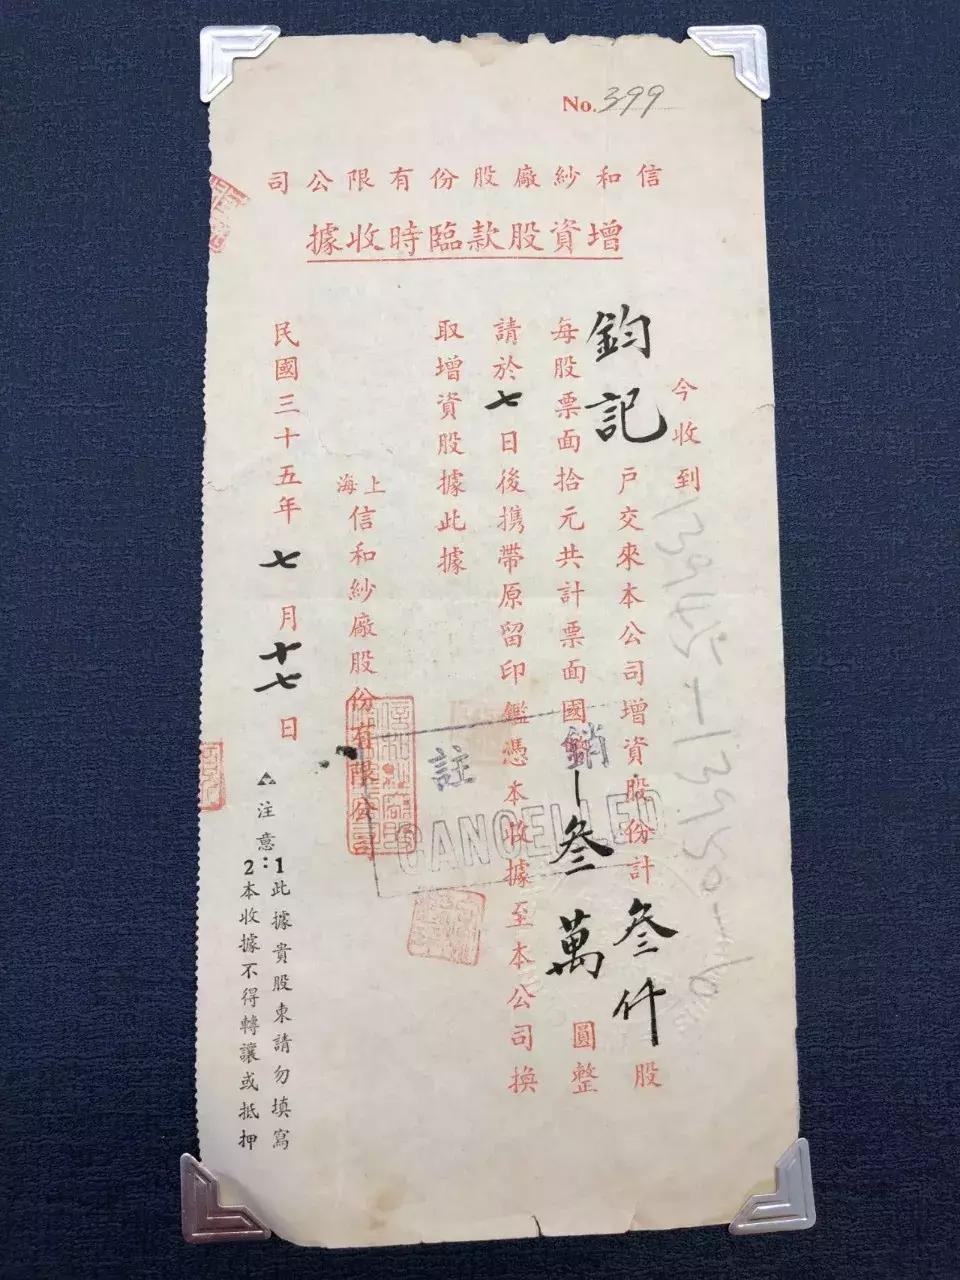 No. 399
信和紗廠股份有限公司
增資股款臨時收據
今收到
鈞記戶交來本公司增資股份計叁仟股
每股票面拾元共計票面國幣叁萬圓整
請於七日後携帶原留印鑑憑本收據至本公司換
取增資股據此據
上海信和紗廠股份有限公司
民國三十五年七月十七日
註銷
CANCELLED
注意：1此據貴股東請勿填寫
2本收據不得轉讓或抵押